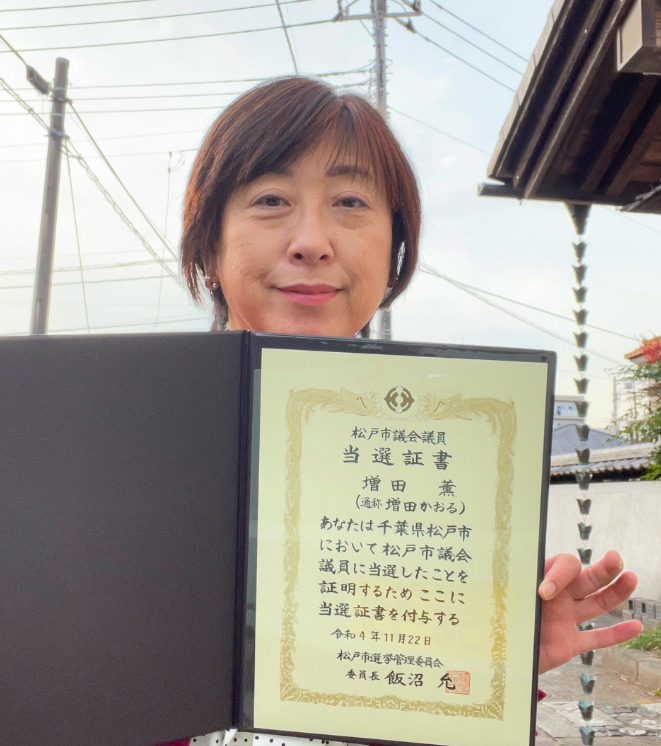 松戸市議会議員
当選証書
増田 薫
(通称 増田かおる)
あなたは千葉県松戸市
において松戸市議会
議員に当選したことを
証明するため ここに
当選証書を付与する
令和4年11月22日
松戸市選挙管理委員会
委員長 飯沼 允